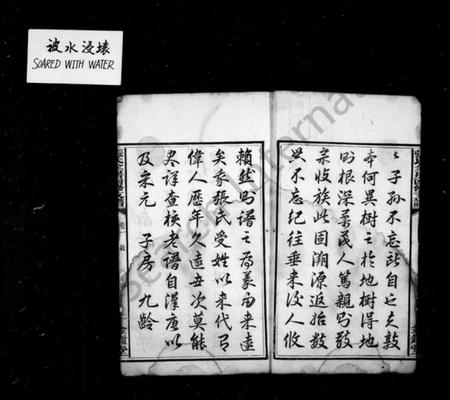 被水浸壞
SOAKED WITH WATER
之子孫不忘所自之夫敦
本何異樹之於地樹得地
則根深葉茂人篤親則敦
宗收族此固溯源返始敦
典不忘紀往垂来後人攸
賴然則譜之為義由来遠
矣我張氏受姓以来代有
偉人歷年久遠世次莫能
盡詳查核老譜自漢唐以
及宋元 子房 九齡